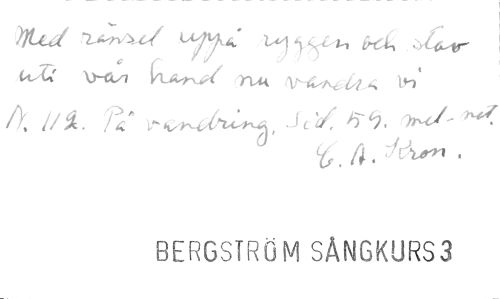 Med ränsel uppå ryggen och stav
uti vår hand nu vandra vi
N. 112. På vandring, Sid. 59. mel-not.
C. A. Kron.
BERGSTRÖM SÅNGKURS 3